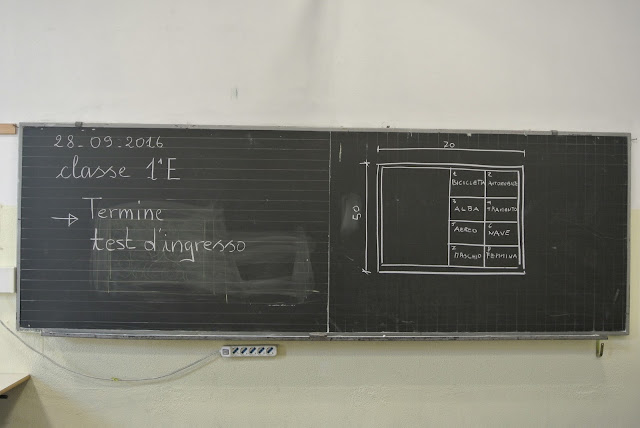 28-09-2016
classe 1ªE
→ Termine
test d'ingresso
20
50
1 BICICLETTA
2 AUTOMOBILE
3 ALBA
4 TRAMONTO
5 AEREO
6 NAVE
7 MASCHIO
8 FEMMINA